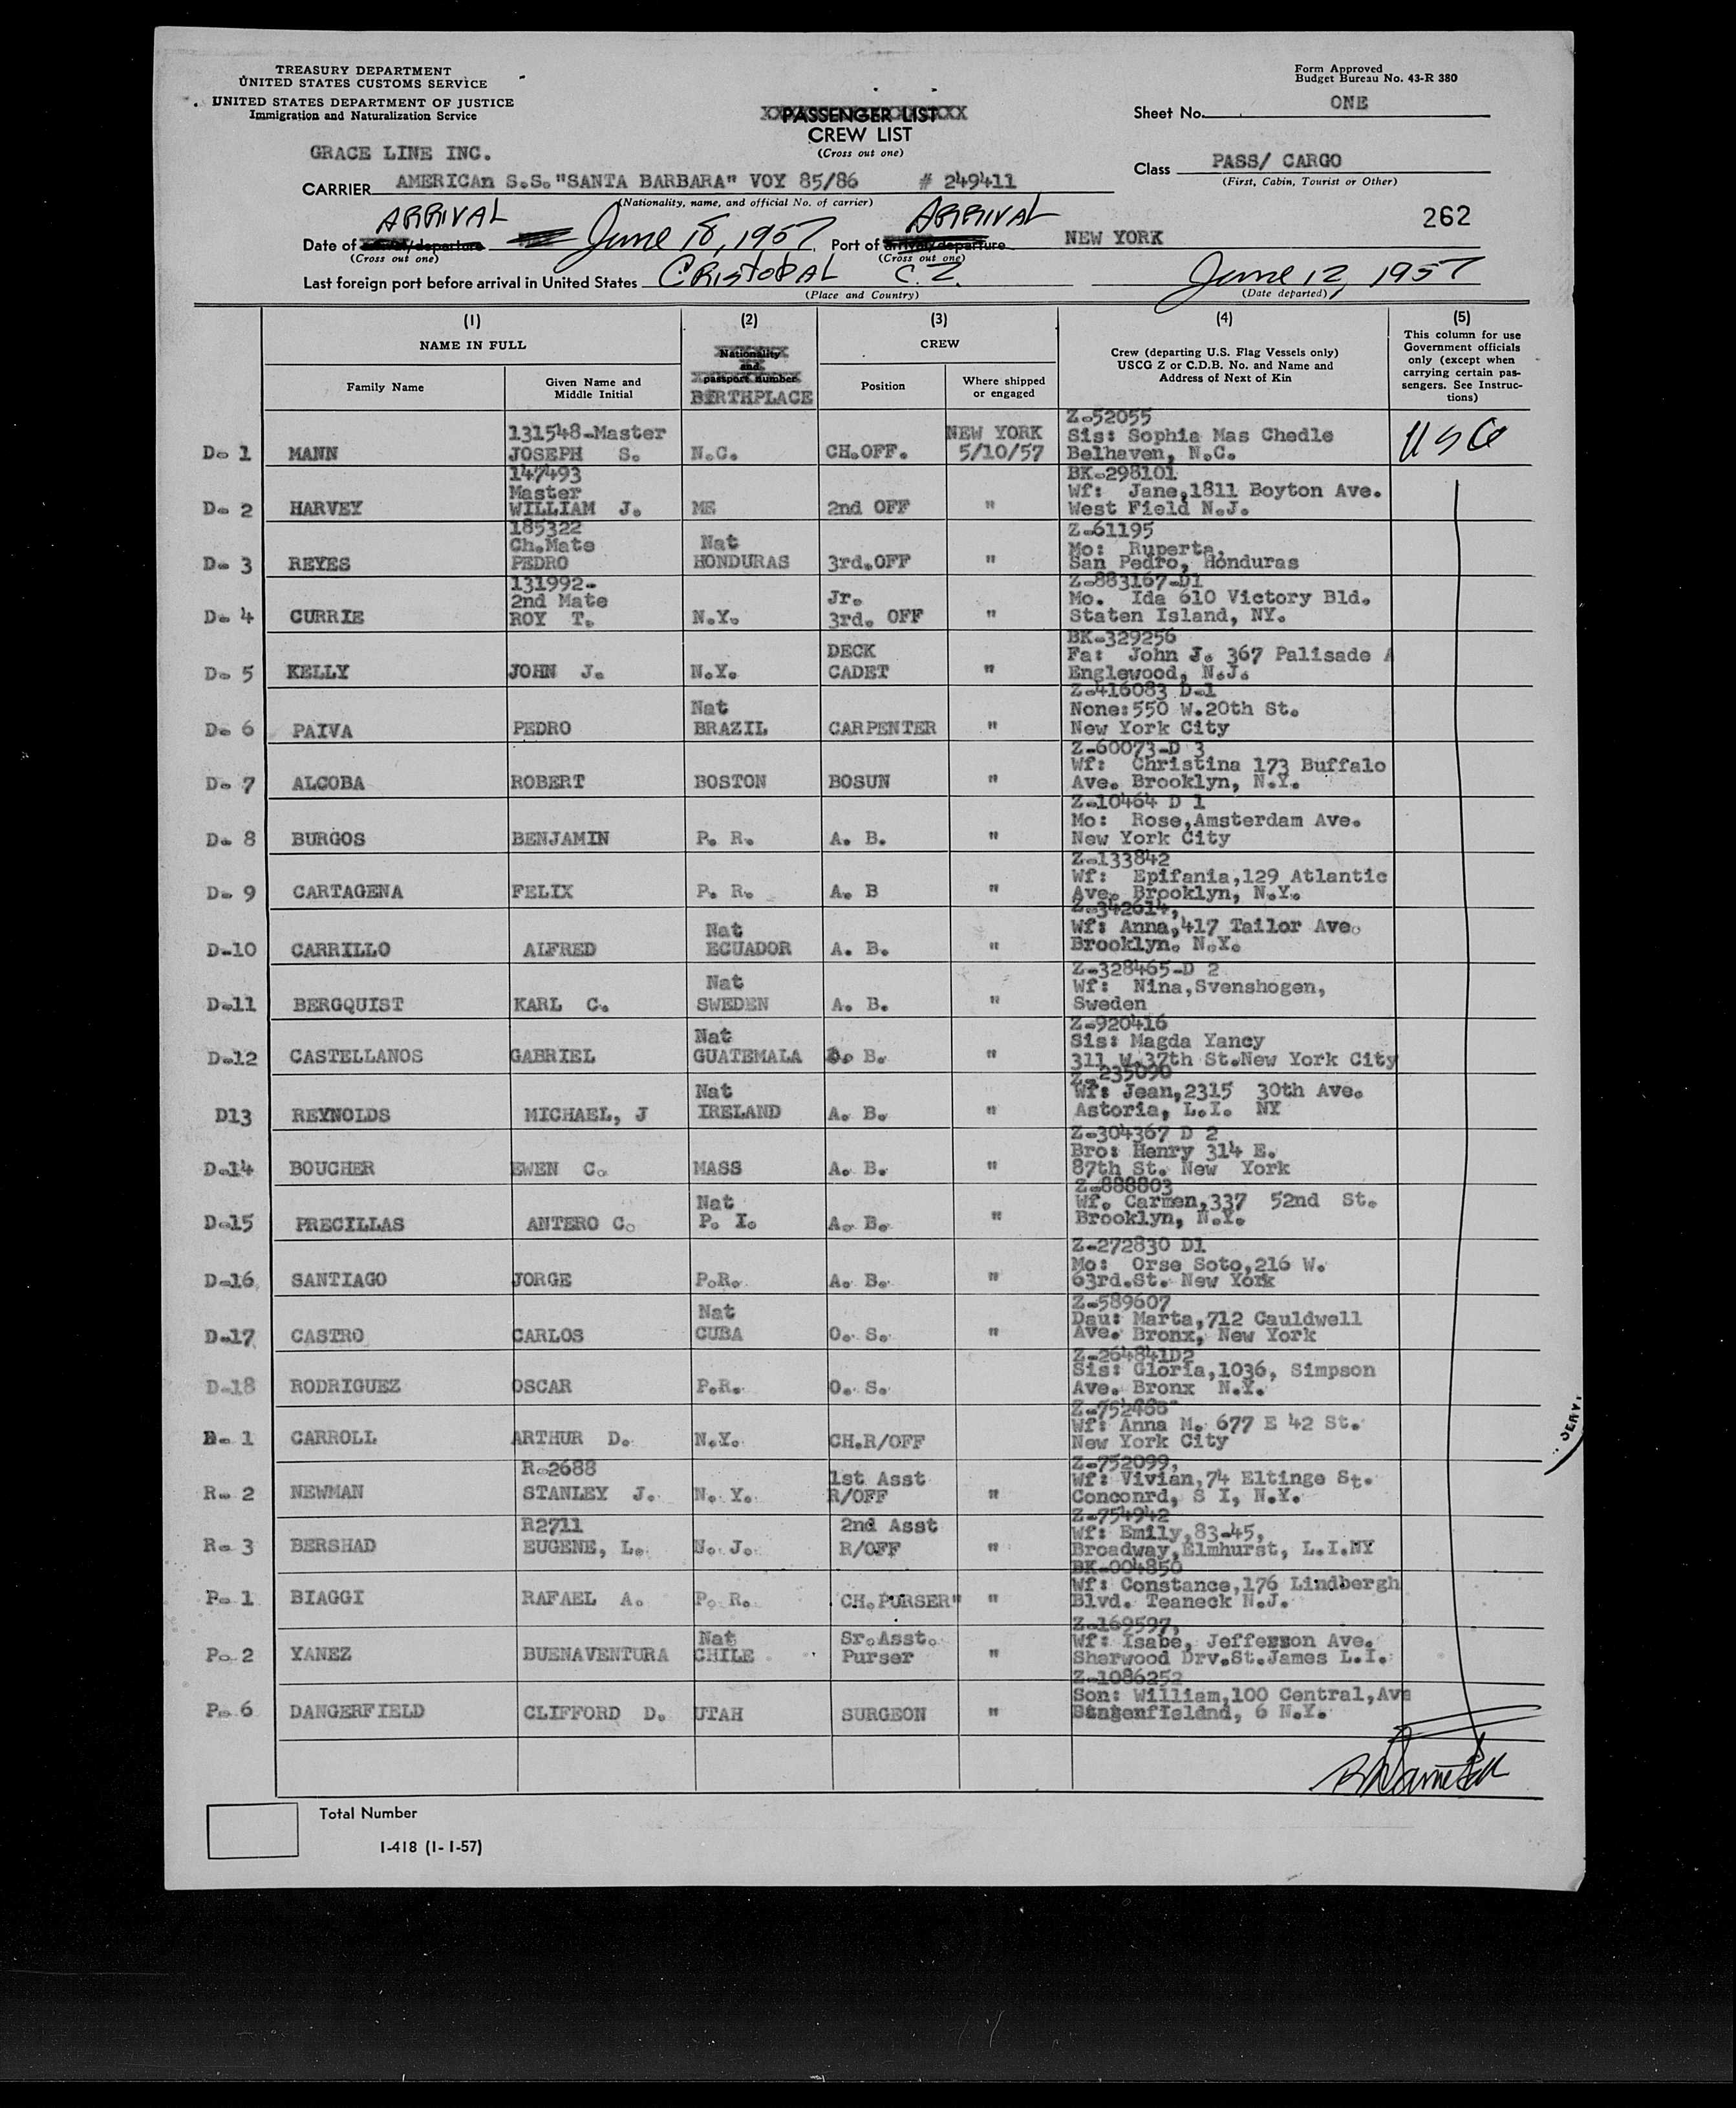 TREASURY DEPARTMENT
UNITED STATES CUSTOMS SERVICE
UNITED STATES DEPARTMENT OF JUSTICE
Immigration and Naturalization Service
Form Approved
Budget Bureau No. 43-R 380
PASSENGER LIST
CREW LIST
(Cross out one)
Sheet No. ONE
GRACE LINE INC.
CARRIER AMERICAn S.S."SANTA BARBARA" VOY 85/86 # 249411
(Nationality, name, and official No. of carrier)
Class PASS/ CARGO
(First, Cabin, Tourist or Other)
262
ARRIVAL ARRIVAL
Date of arrival/departure June 18, 1957 Port of arrival/departure NEW YORK
(Cross out one) (Cross out one)
Last foreign port before arrival in United States CRISTOBAL C.Z. June 12, 1957
(Place and Country) (Date departed)
(1) (2) (3) (4) (5)
NAME IN FULL
Family Name
Given Name and Middle Initial
Nationality and passport number
BIRTHPLACE
CREW
Position
Where shipped or engaged
Crew (departing U.S. Flag Vessels only)
USCG Z or C.D.B. No. and Name and
Address of Next of Kin
This column for use
Government officials
only (except when
carrying certain pas-
sengers. See Instruc-
tions)
131548-Master NEW YORK Z-52055
Sis: Sophia Mas Chedle
D- 1 MANN JOSEPH S. N.C. CH.OFF. 5/10/57 Belhaven, N.C.
147493 BK-298101
Master Wf: Jane,1811 Boyton Ave.
D- 2 HARVEY WILLIAM J. ME 2nd OFF " West Field N.J.
185322 Z-61195
Ch.Mate Nat Mo: Ruperta,
D- 3 REYES PEDRO HONDURAS 3rd.OFF " San Pedro, Honduras
131992- Z-883167-D1
2nd Mate Jr. Mo. Ida 610 Victory Bld.
D- 4 CURRIE ROY T. N.Y. 3rd. OFF " Staten Island, NY.
BK-329256
DECK Fa: John J. 367 Palisade A
D- 5 KELLY JOHN J. N.Y. CADET " Englewood, N.J.
Z-416083 D-1
Nat None:550 W.20th St.
D- 6 PAIVA PEDRO BRAZIL CARPENTER " New York City
Z-60073-D 3
Wf: Christina 173 Buffalo
D- 7 ALCOBA ROBERT BOSTON BOSUN " Ave. Brooklyn, N.Y.
Z-10464 D 1
Mo: Rose,Amsterdam Ave.
D- 8 BURGOS BENJAMIN P. R. A. B. " New York City
Z-133842
Wf: Epifania,129 Atlantic
D- 9 CARTAGENA FELIX P. R. A. B " Ave. Brooklyn, N.Y.
Z-342614,
Nat Wf: Anna,417 Tailor Ave.
D-10 CARRILLO ALFRED ECUADOR A. B. " Brooklyn. N.Y.
Z-328465-D 2
Nat Wf: Nina,Svenshogen,
D-11 BERGQUIST KARL C. SWEDEN A. B. " Sweden
Z-920416
Nat Sis: Magda Yancy
D-12 CASTELLANOS GABRIEL GUATEMALA B. " 311 W.37th St.New York City
Z-235090
Nat Wf: Jean,2315 30th Ave.
D13 REYNOLDS MICHAEL, J IRELAND A. B. " Astoria, L.I. NY
Z-304367 D 2
Bro: Henry 314 E.
D-14 BOUCHER EWEN C. MASS A. B. " 87th St. New York
Z-888803
Nat Wf. Carmen,337 52nd St.
D-15 PRECILLAS ANTERO C. P. I. A. B. " Brooklyn, N.Y.
Z-272830 D1
Mo: Orse Soto,216 W.
D-16 SANTIAGO JORGE P.R. A. B. " 63rd.St. New York
Z-589607
Nat Dau: Marta,712 Cauldwell
D-17 CASTRO CARLOS CUBA O. S. " Ave. Bronx, New York
Z-264841D2
Sis: Gloria,1036, Simpson
D-18 RODRIGUEZ OSCAR P.R. O. S. Ave. Bronx N.Y.
Wf: Anna M. 677 E 42 St.
1 CARROLL ARTHUR D. N.Y. CH.R/OFF New York City
R-2688 Z-752099,
1st Asst Wf: Vivian,74 Eltinge St.
R- 2 NEWMAN STANLEY J. N. Y. R/OFF " Conconrd, S I, N.Y.
R2711 Z-754942
2nd Asst Wf: Emily,83-45,
R- 3 BERSHAD EUGENE, L. N. J. R/OFF " Broadway,Elmhurst, L.I.NY
BK-004850
Wf: Constance,176 Lindbergh
P- 1 BIAGGI RAFAEL A. P. R. CH.PURSER" " Blvd. Teaneck N.J.
Z-169597,
Nat Sr.Asst. Wf: Isabe, Jefferson Ave.
P- 2 YANEZ BUENAVENTURA CHILE Purser " Sherwood Drv.St.James L.I.
Z-1086252
Son: William,100 Central,Ave
P- 6 DANGERFIELD CLIFFORD D. UTAH SURGEON " 6 N.Y.
Total Number
I-418 (1-1-57)